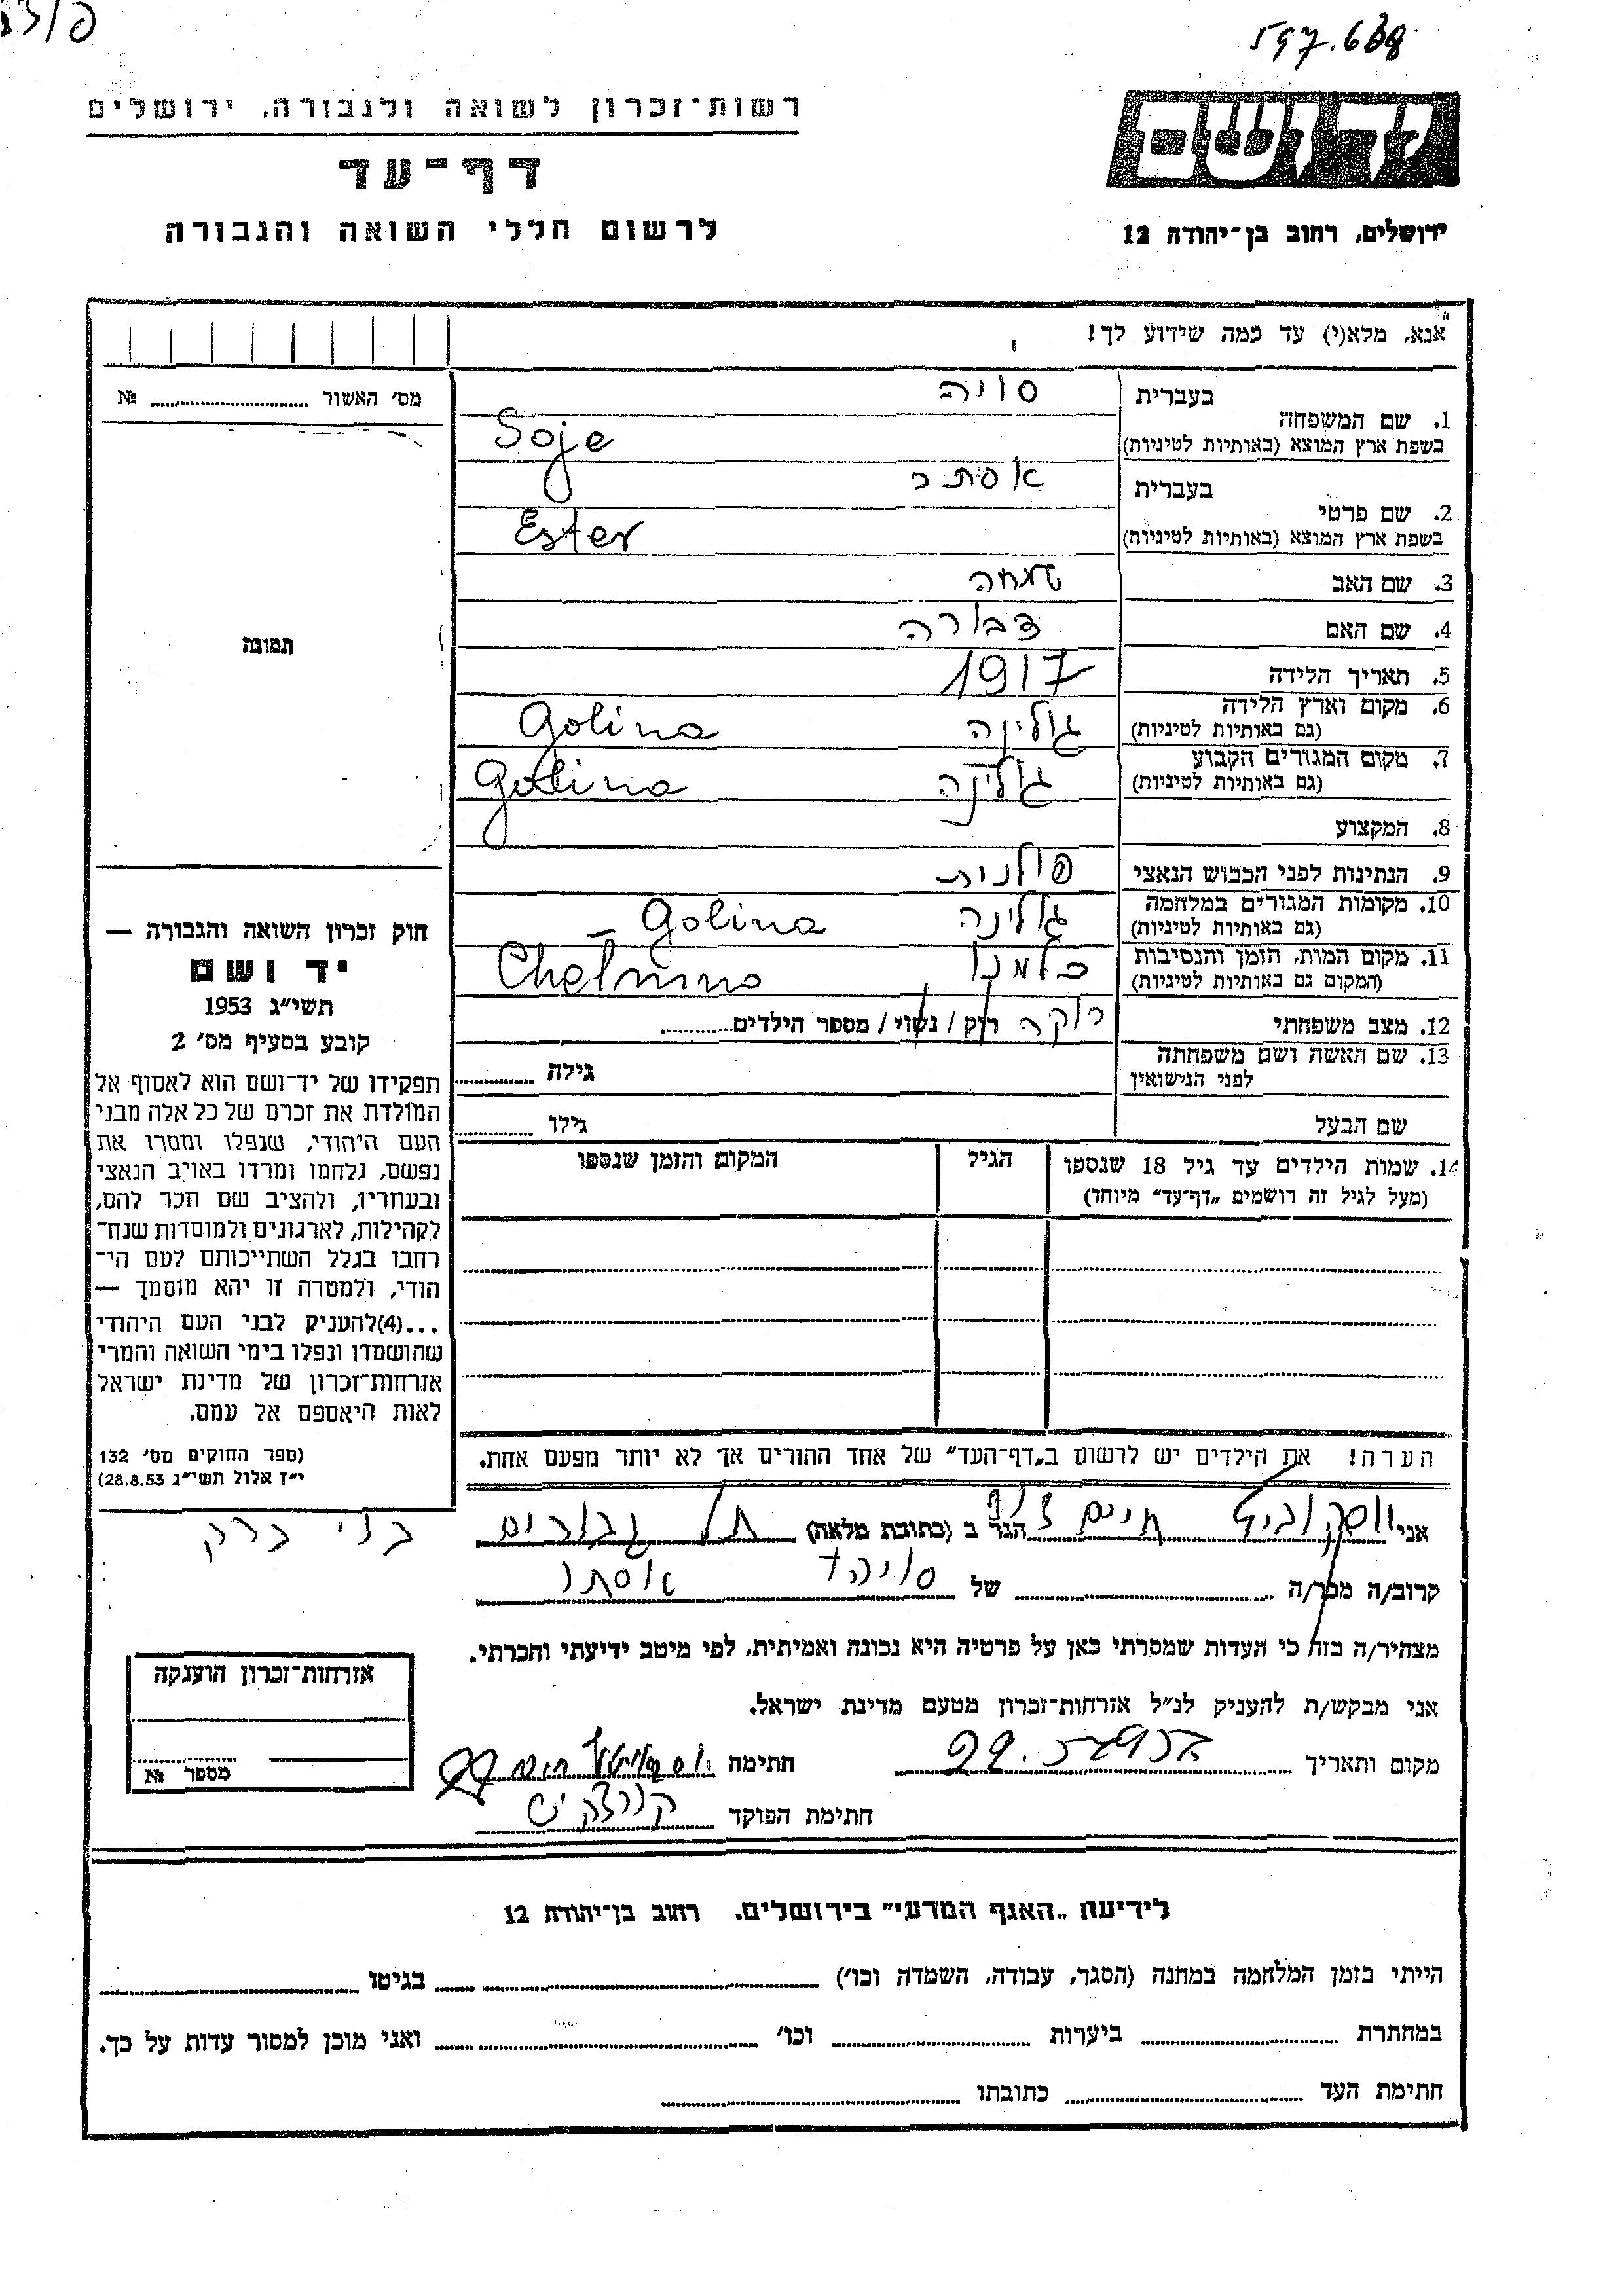 597.638
רשות־זכרון לשואה ולגבורה, ירושלים
דף־עד
לרשום חללי השואה והגבורה
יד ושם
ירושלים, רחוב בן־יהודה 12
אנא, מלא(י) עד כמה שידוע לך!
מס׳ האשור ................ №
תמונה
חוק זכרון השואה והגבורה —
יד ושם
תשי״ג 1953
קובע בסעיף מס׳ 2
תפקידו של יד־ושם הוא לאסוף אל
המולדת את זכרם של כל אלה מבני
העם היהודי, שנפלו ומסרו את
נפשם, נלחמו ומרדו באויב הנאצי
ובעוזריו, ולהציב שם וזכר להם,
לקהילות, לארגונים ולמוסדות שנח־
רחבו בגלל השתייכותם לעם הי־
הודי, ולמטרה זו יהא מוסמך —
...(4)להעניק לבני העם היהודי
שהושמדו ונפלו בימי השואה והמרי
אזרחות־זכרון של מדינת ישראל
לאות היאספם אל עמם.
(ספר החוקים מס׳ 132
י״ז אלול תשי״ג 28.8.53)
בעברית סויה
1. שם המשפחה
בשפת ארץ המוצא (באותיות לטיניות) Soje
בעברית אסתר
2. שם פרטי
בשפת ארץ המוצא (באותיות לטיניות) Ester
3. שם האב שמחה
4. שם האם דבורה
5. תאריך הלידה 1917
6. מקום וארץ הלידה גולינה Golina
(גם באותיות לטיניות)
7. מקום המגורים הקבוע גולינה Golina
(גם באותיות לטיניות)
8. המקצוע
9. הנתינות לפני הכבוש הנאצי פולנית
10. מקומות המגורים במלחמה גולינה Golina
(גם באותיות לטיניות)
11. מקום המות, הזמן והנסיבות כלמנו Chelmno
(המקום גם באותיות לטיניות)
12. מצב משפחתי רוקה רוק / נשוי / מספר הילדים..........
13. שם האשה ושם משפחתה גילה ..........
לפני הנישואין
שם הבעל גילו ..........
14. שמות הילדים עד גיל 18 שנספו הגיל המקום והזמן שנספו
(מעל לגיל זה רושמים „דף־עד״ מיוחד)
הערה! את הילדים יש לרשום ב„דף־העד״ של אחד ההורים אך לא יותר מפעם אחת.
אני חיים הגר ב (כתובת מלאה) תל גבורים בני ברק
קרוב/ה מכר/ה .......... של סויה אסתר
מצהיר/ה בזה כי העדות שמסרתי כאן על פרטיה היא נכונה ואמיתית, לפי מיטב ידיעתי והכרתי.
אני מבקש/ת להעניק לנ״ל אזרחות־זכרון מטעם מדינת ישראל.
מקום ותאריך חתימה
חתימת הפוקד
אזרחות־זכרון הוענקה
מספר №
לידיעת „האגף המדעי״ בירושלים. רחוב בן־יהודה 12
הייתי בזמן המלחמה במחנה (הסגר, עבודה, השמדה וכו׳) .......... בגיטו ..........
במחתרת .......... ביערות .......... וכו׳ .......... ואני מוכן למסור עדות על כך.
חתימת העד .......... כתובתו ..........